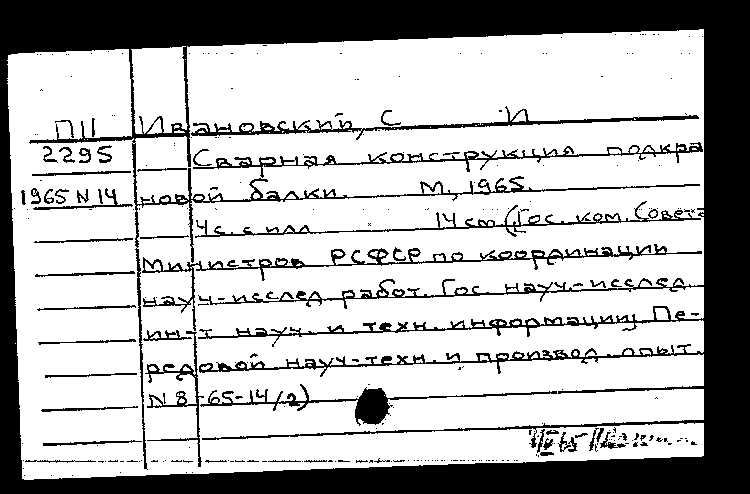 П11 Ивановский, С И
2295 Сварная конструкция подкра
1965 N 14 новой балки. М., 1965.
4 с. с илл 14 см (Гос. ком. Совета
Министров РСФСР по координации
науч-исслед работ. Гос. науч.-исслед.
ин-т науч. и техн. информации. Пе-
редовой науч-техн. и производ. опыт.
N 8-65-14/2)